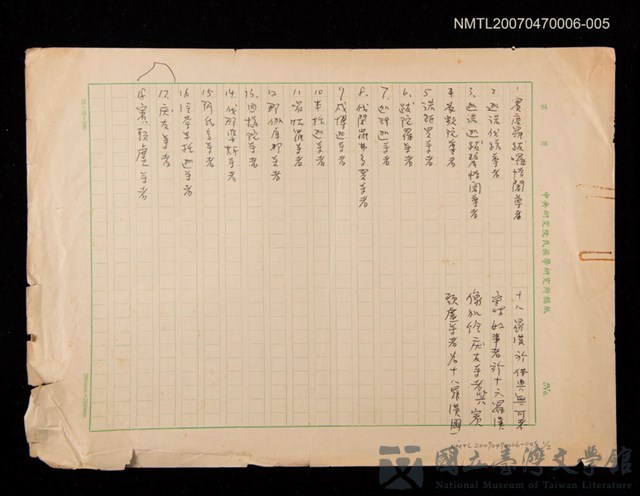 NMTL20070470006-005
中央研究院民族學研究所稿紙
No.
1. 賓度羅跋囉惰闍尊者
2. 迦諾伐蹉尊者
3. 迦諾迦跋黎惰闍尊者
4. 蘇頻陀尊者
5. 諾距羅尊者
6. 跋陀羅尊者
7. 迦理迦尊者
8. 伐闍羅弗多羅尊者
9. 戍博迦尊者
10. 半托迦尊者
11. 羅怙羅尊者
12. 那伽犀那尊者
13. 因揭陀尊者
14. 伐那婆斯尊者
15. 阿氏多尊者
16. 注荼半托迦尊者
17. 慶友尊者
18. 賓頭盧尊者
十八羅漢於佛典無可考
好事者於十六羅漢
像加繪慶友尊者與賓
頭盧尊者為十八羅漢圖
NMTL20070470006-005 1/2
國立臺灣文學館
National Museum of Taiwan Literature